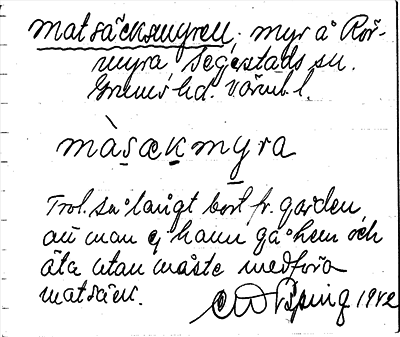 matsäcksmyren, myr å Rör-
myra, Segerstads sn.
Grums hd. Värml.
màsackmyra
Trol. så långt bort fr. gården,
att man ej hann gå hem och
äta utan måste medföra
matsäck.
1942